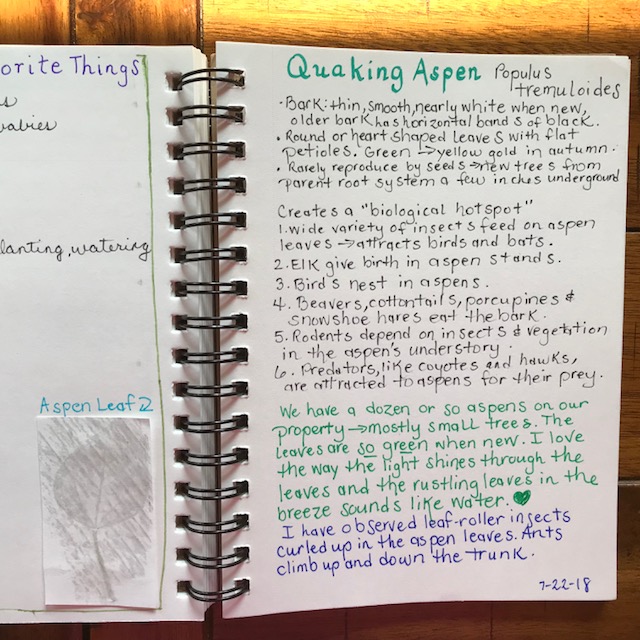 orite Things
s
abies
lanting, watering
Aspen Leaf
Quaking Aspen Populus
tremuloides
• Bark: thin, smooth, nearly white when new,
older bark has horizontal bands of black.
• Round or heart shaped leaves with flat
petioles. Green → yellow gold in autumn.
• Rarely reproduce by seeds → new trees from
parent root system a few inches underground
Creates a "biological hotspot"
1. Wide variety of insects feed on aspen
leaves → attracts birds and bats.
2. Elk give birth in aspen stands.
3. Bird's nest in aspens.
4. Beavers, cottontails, porcupines &
snowshoe hares eat the bark.
5. Rodents depend on insects & vegetation
in the aspen's understory.
6. Predators, like coyotes and hawks,
are attracted to aspens for their prey.
We have a dozen or so aspens on our
property → mostly small trees. The
leaves are so green when new. I love
the way the light shines through the
leaves and the rustling leaves in the
breeze sounds like water. ♥
I have observed leaf-roller insects
curled up in the aspen leaves. Ants
climb up and down the trunk.
7-22-18